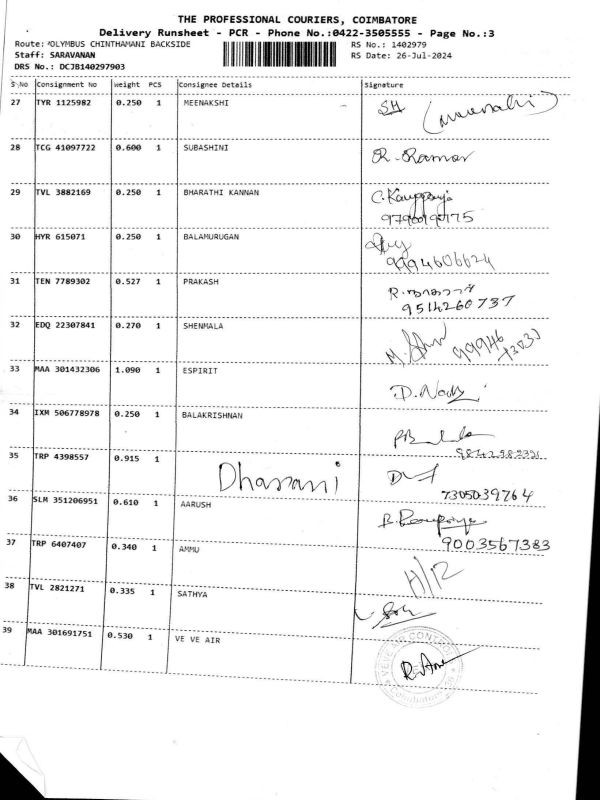 THE PROFESSIONAL COURIERS, COIMBATORE
Delivery Runsheet - PCR - Phone No.:0422-3505555 - Page No.:3
Route: OLYMBUS CHINTHAMANI BACKSIDE RS No.: 1402979
Staff: SARAVANAN RS Date: 26-Jul-2024
DRS No.: DCJB140297903
S.No Consignment No Weight PCS Consignee Details Signature
27 TYR 1125982 0.250 1 MEENAKSHI (Meenakshi)
28 TCG 41097722 0.600 1 SUBASHINI
29 TVL 3882169 0.250 1 BHARATHI KANNAN
30 HYR 615071 0.250 1 BALAMURUGAN
9994606624
31 TEN 7789302 0.527 1 PRAKASH
9514260737
32 EDQ 22307841 0.270 1 SHENMALA
99946
33 MAA 301432306 1.090 1 ESPIRIT
34 IXM 506778978 0.250 1 BALAKRISHNAN
35 TRP 4398557 0.915 1 Dharani
7305039764
36 SLM 351206951 0.610 1 AARUSH
9003567383
37 TRP 6407407 0.340 1 AMMU
H/R
38 TVL 2821271 0.335 1 SATHYA
39 MAA 301691751 0.530 1 VE VE AIR
VEVE AIR CONTROL
Coimbatore